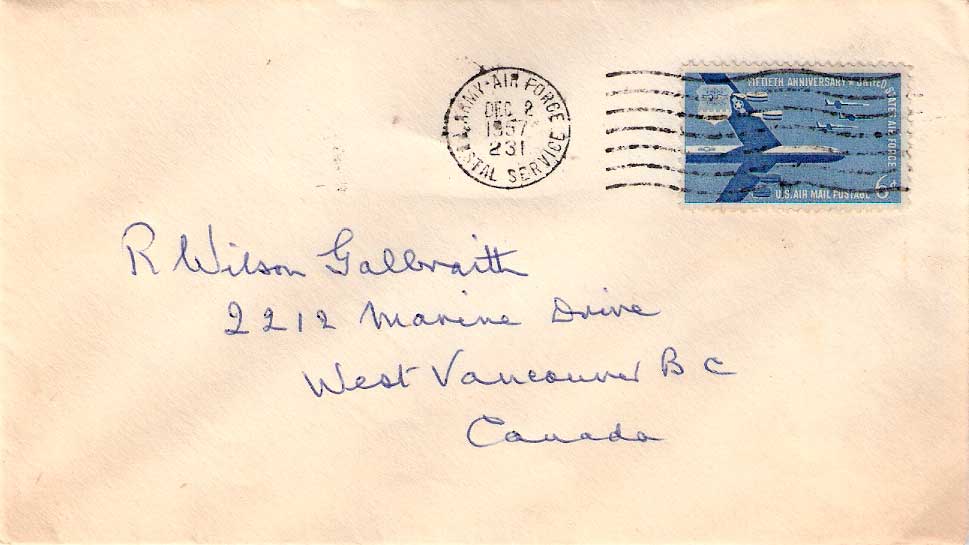 ARMY-AIR FORCE
DEC 2
1957
231
POSTAL SERVICE
FIFTIETH ANNIVERSARY ★ UNITED STATES AIR FORCE
6¢
U.S. AIR MAIL POSTAGE
R Wilson Galbraith
2212 Marine Drive
West Vancouver B C
Canada